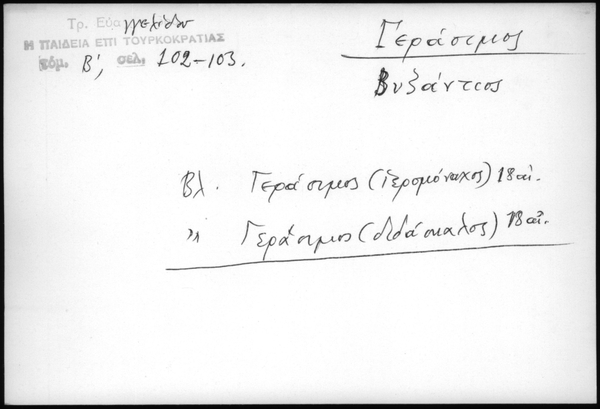 Τρ. Ευαγγελίδου
Η ΠΑΙΔΕΙΑ ΕΠΙ ΤΟΥΡΚΟΚΡΑΤΙΑΣ
τόμ. Β', σελ. 102-103.
Γεράσιμος
Βυζάντιος
Βλ. Γεράσιμος (ἱερομόναχος) 18 αἰ.
" Γεράσιμος (διδάσκαλος) 18 αἰ.